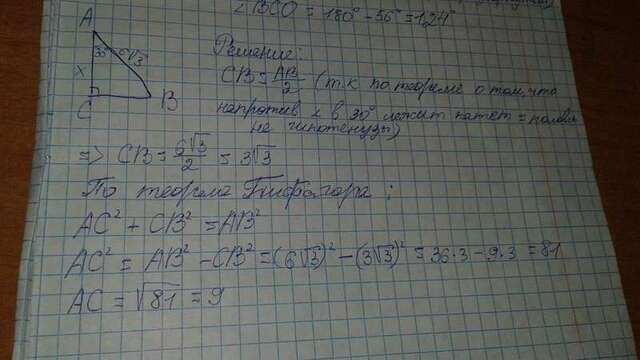 ∠BCO = 180° - 56° = 124°
A
30° 6√3
x
C B
Решение:
CB = AB/2 (т.к по теореме о том, что
напротив ∠ в 30° лежит катет = полови
не гипотенузы)
=> CB = 6√3/2 = 3√3
По теорема Пифагора:
AC² + CB² = AB²
AC² = AB² - CB² = (6√3)² - (3√3)² = 36·3 - 9·3 = 81
AC = √81 = 9